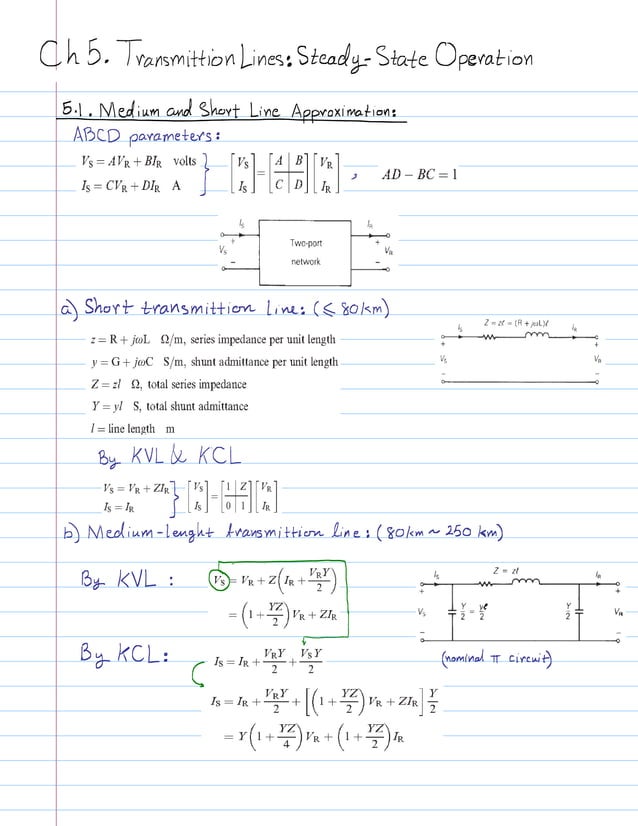 Ch 5. Transmittion Lines: Steady-State Operation
5.1. Medium and Short Line Approximation:
ABCD parameters:
V_S = AV_R + BI_R volts
I_S = CV_R + DI_R A
[V_S / I_S] = [A | B / C | D] [V_R / I_R] , AD − BC = 1
I_S I_R
+ Two-port +
V_S V_R
− network −
a) Short transmittion line: (⩽ 80 km)
z = R + jωL Ω/m, series impedance per unit length
y = G + jωC S/m, shunt admittance per unit length
Z = zl Ω, total series impedance
Y = yl S, total shunt admittance
l = line length m
Z = zℓ = (R + jωL)ℓ
I_S I_R
+ +
V_S V_R
− −
By KVL & KCL
V_S = V_R + ZI_R
I_S = I_R
[V_S / I_S] = [1 | Z / 0 | 1] [V_R / I_R]
b) Medium-lenght transmittion line: (80km ~ 250 km)
By KVL :
V_S = V_R + Z(I_R + V_RY/2)
= (1 + YZ/2)V_R + ZI_R
Z = zℓ
I_S I_R
+ +
V_S Y/2 = yℓ/2 Y/2 V_R
− −
(nominal π circuit)
By KCL:
I_S = I_R + V_RY/2 + V_SY/2
I_S = I_R + V_RY/2 + [(1 + YZ/2)V_R + ZI_R] Y/2
= Y(1 + YZ/4)V_R + (1 + YZ/2)I_R